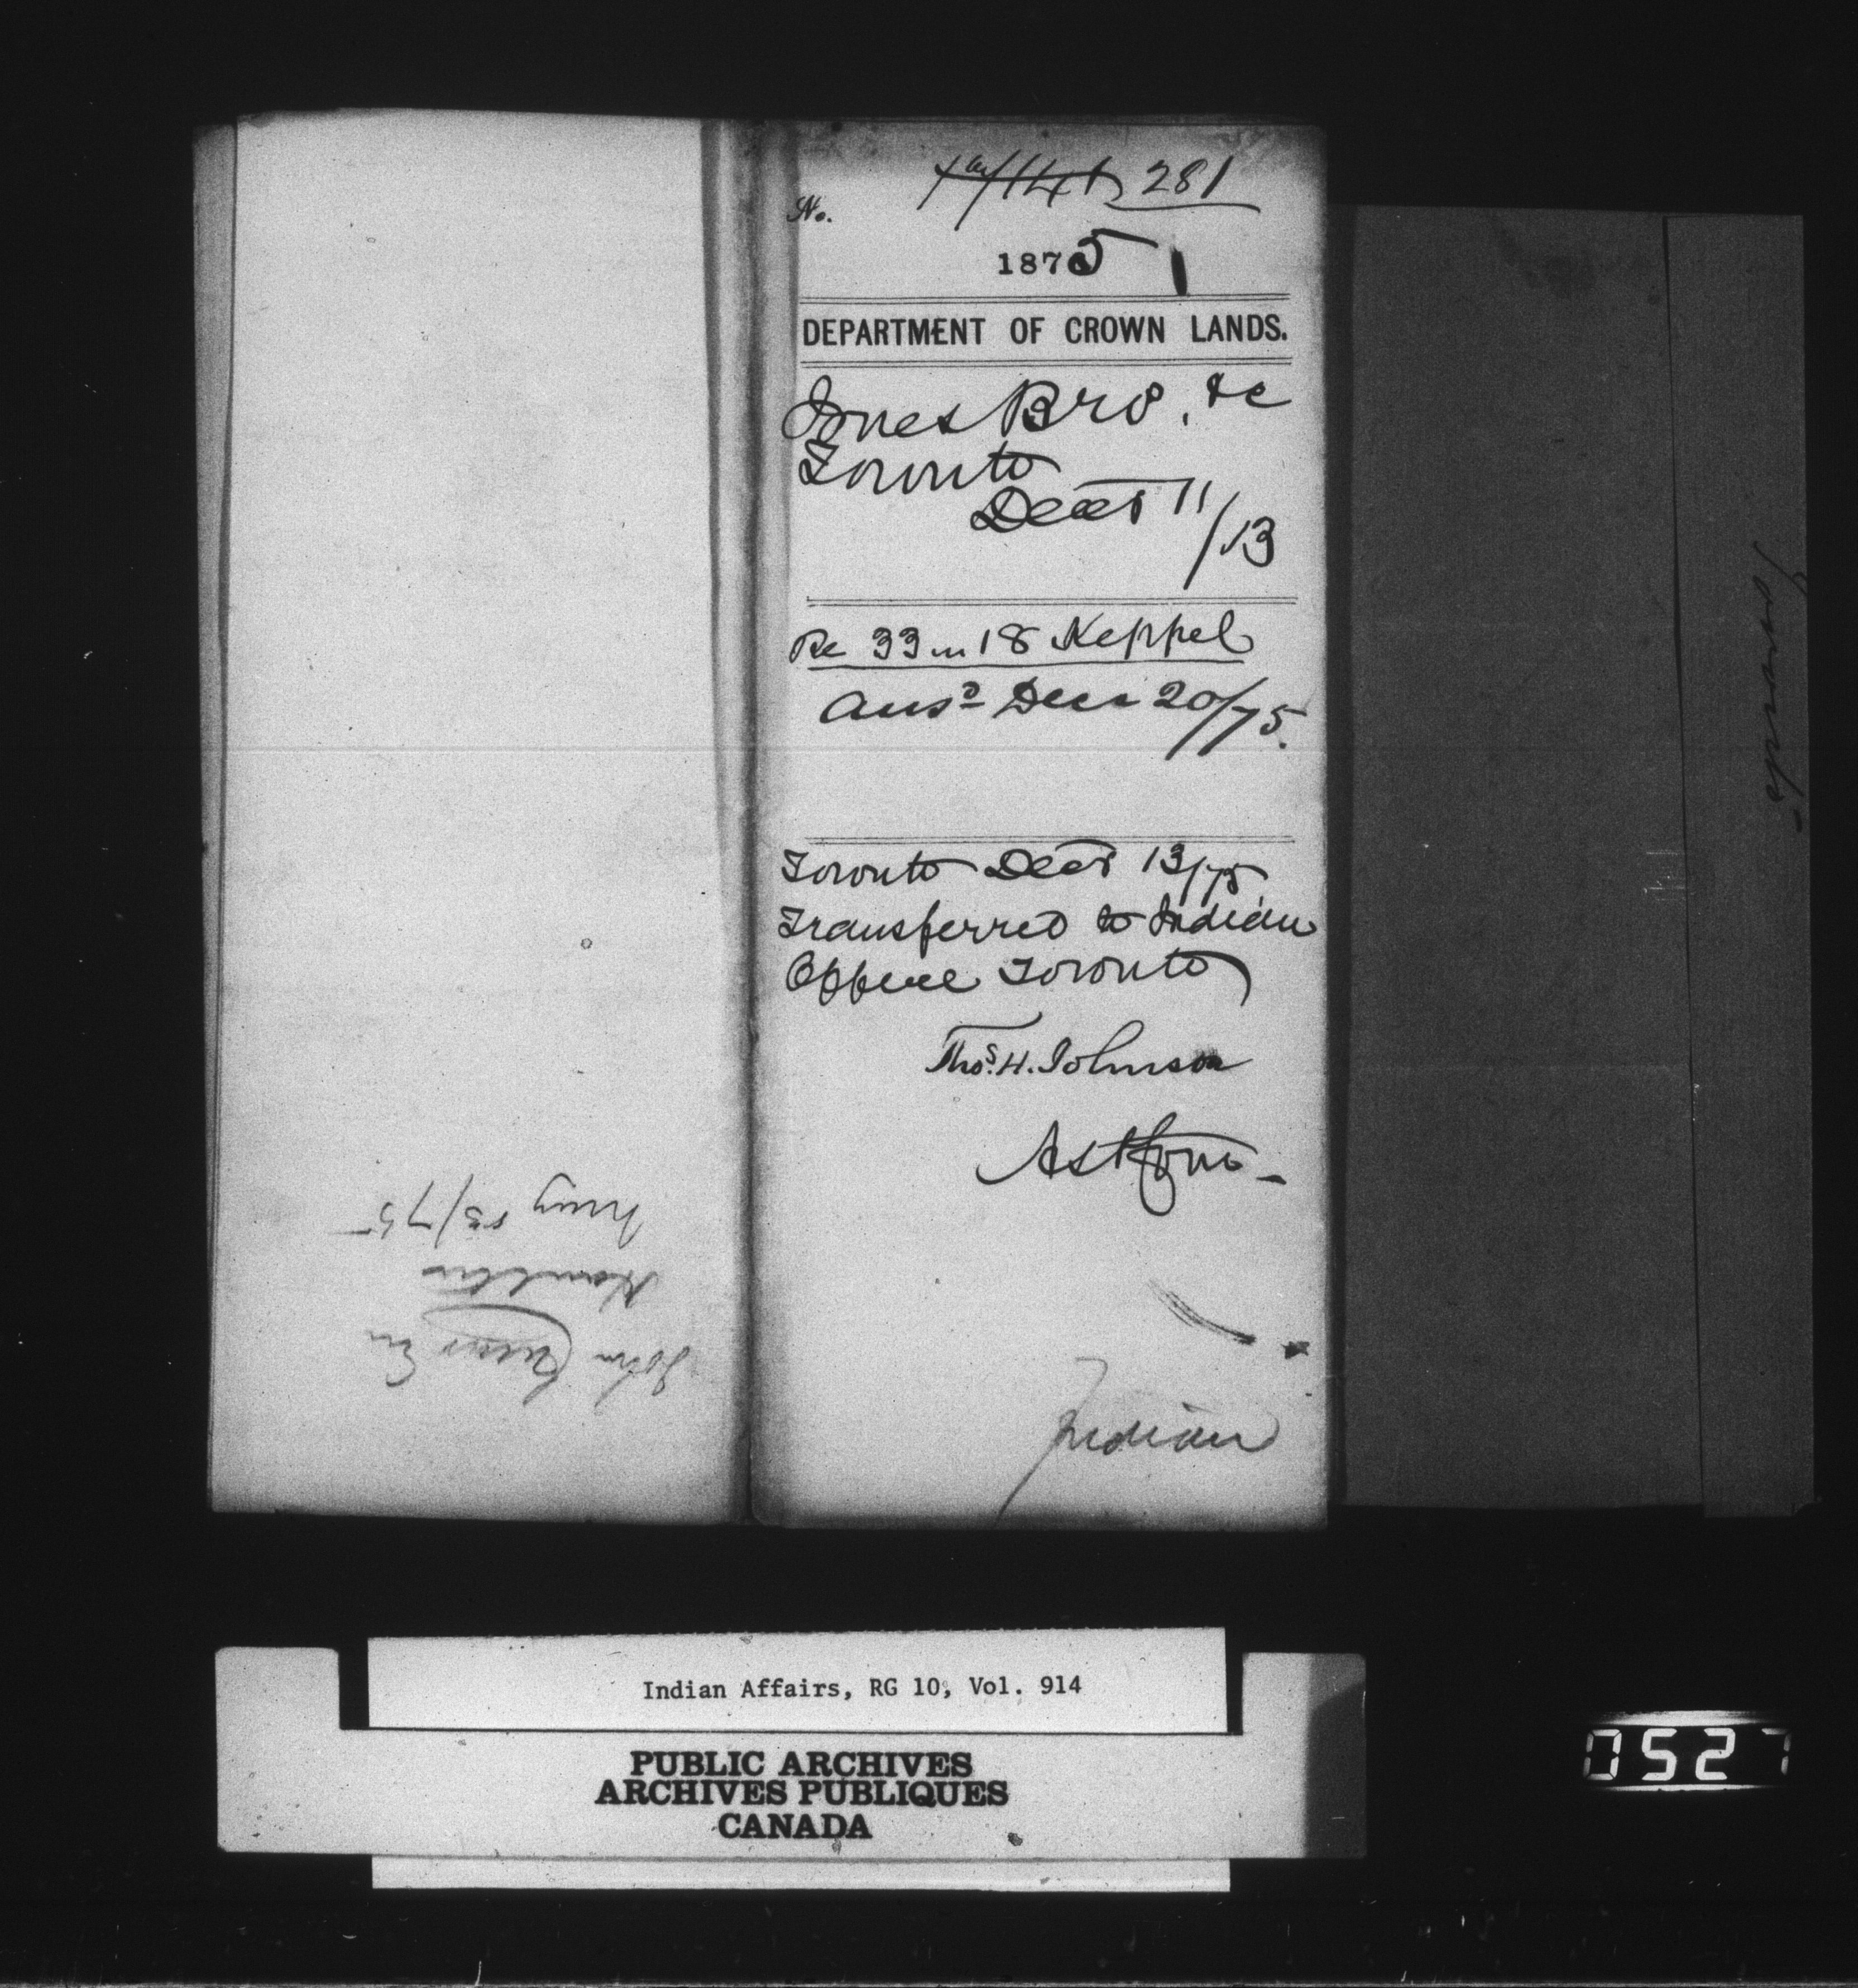 No. 281
1875
DEPARTMENT OF CROWN LANDS.
Jones Bro. &c
Toronto
Decr 11/13
Re 33 in 18 Keppel
Ansd Decr 20/75.
Toronto Decr 13/75
Transferred to Indian
Office Toronto
Thos. H. Johnson
Asst Com
Indian
John
Indian Affairs, RG 10, Vol. 914
PUBLIC ARCHIVES
ARCHIVES PUBLIQUES
CANADA
0527